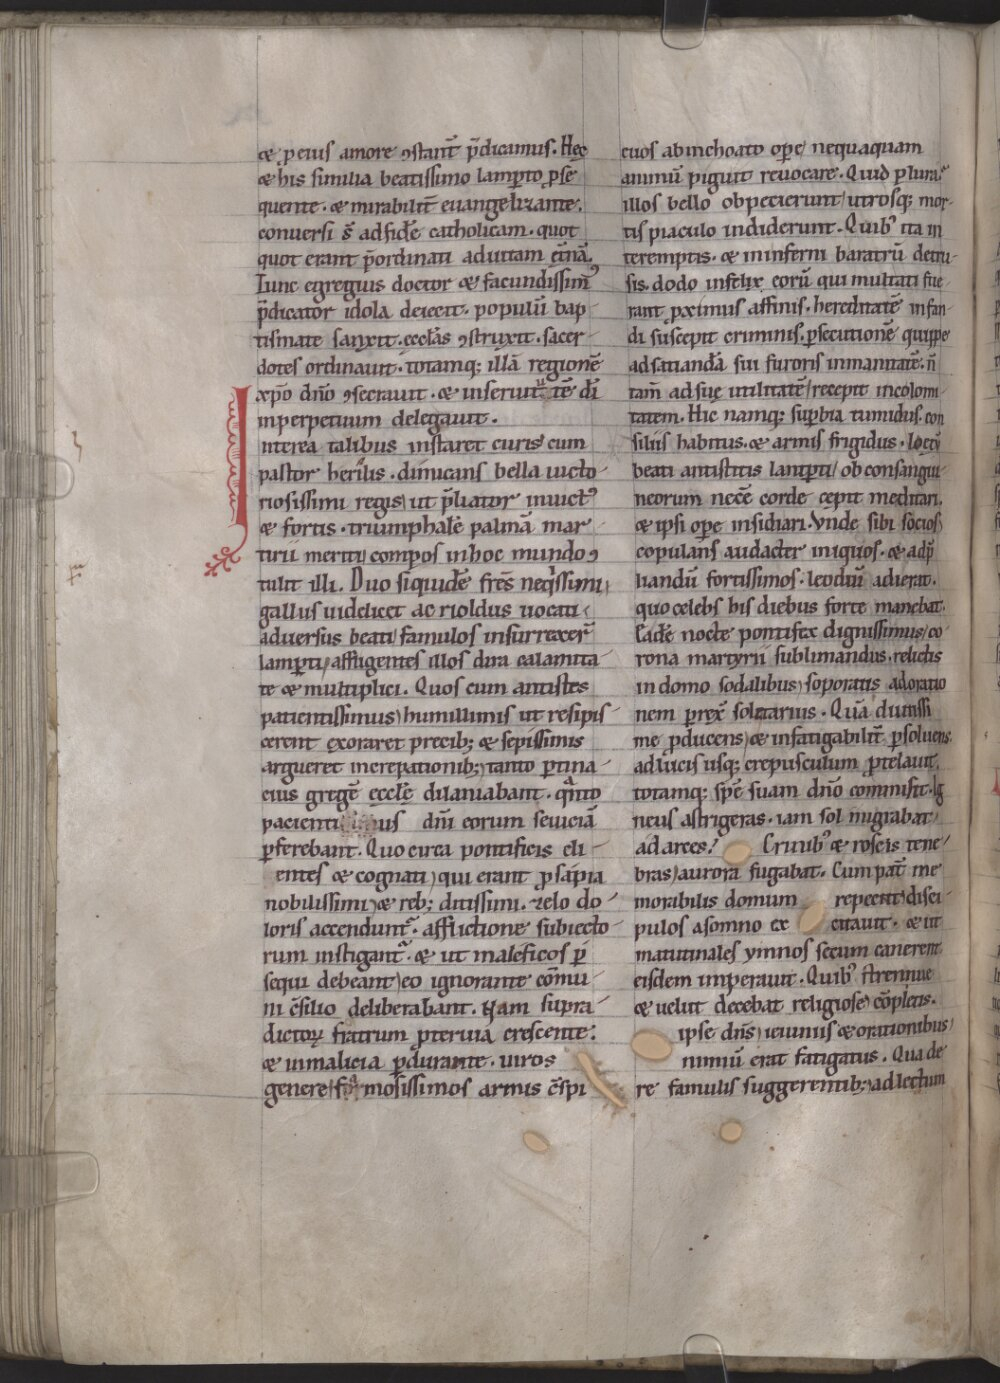 & p eius amore ꝯstant̄ p̄dicamus. Hęc
& his similia beatissimo lamƿto ꝓse
quente. & mirabilit̄ evangelizante.
conversi s̄ ad fidē catholicam. quot
quot erant p̄ordinati ad vitam et̄nā.
Tunc egregius doctor & facundissimꝰ
p̄dicator idola deiecit. populū bap
tismate sanxit. ecclas ꝯstruxit. sacer
dotes ordinauit. totamq; illā regionē
xp̄o dn̄o ꝯsecrauit. & inseruitutē dī
inperpetuum delegauit.
Interea talibus instaret curis cum
pastor herilis. dimicans bella victo
riosissimi regis ut p̄liator inuictꝰ
& fortis. triumphalē palmā mar
tirii meriti compos in hoc mundo ꝯ
tulit illi. Duo siquidē fr̄es neq̇ssimi,
gallus uidelicet ac rioldus uocati
adversus beati famulos insurrexer̄
lamꝑti, affligentes illos dira calamita
te & multiplici. Quos cum antistes
patientissimus humillimis ut resipis
cerent exoraret precib; & sepissimis
argueret increpationib; tanto ꝑtina
cius gregē ecclē dilaniabant. q̇nto
pacienti us dn̄i eorum seuiciā
ꝑferebant. Quo circa pontificis cli
entes & cognati, qui erant ꝓsapia
nobilissimi & reb; ditissimi. zelo do
loris accenduntᷣ. afflictione subiecto
rum instigantᷣ. & ut maleficos ꝑ
sequi debeant, eo ignorante cōmu
ni c̄silio deliberabant. Nam supra
dictoꝝ fratrum ꝓteruia crescente:
& in malicia ꝑdurante. uiros
genere formosissimos armis c̄spi
cuos ab inchoato oꝑe nequaquam
animū piguit revocare. Quid plura?
illos bello obpecierunt, utrosq; mor
tis piaculo indiderunt. Quibꝰ ita in
teremptis. & in inferni baratrū detru
sis. dodo infelix eorū qui multati fue
rant ꝓximus affinis. hereditatē infan
di suscepit criminis. ꝑsecutionē quippe
ad satiandā sui furoris inmanitatē. n̄
tam̄ ad suę utilitatē, recepit incolomi
tatem. Hic namq; suꝑbia tumidus. con
siliis habitus. & armis frigidus. locū
beati antistitis lamꝑti, ob consangui
neorum necē corde cepit meditari.
& ipsi oꝑe insidiari. Vnde sibi socios
copulans audacter iniquos. & ad p̄
liandū fortissimos. leodiū adierat.
quo celebs his diebus forte manebat.
Eadē nocte pontifex dignissimus, co
rona martyrii sublimandus. relictis
in domo sodalibus, soporatis adoratio
nem ꝑrexit solitarius. Quā diutissi
me ꝓducens, & infatigabilit̄ ꝑsoluens
ad lucis usq; crepusculum ꝓtelauit.
totamq; spē suam dn̄o commisit. Ig
neus astrigeras. iam sol migrabat,
ad arces. Crinibꝰ & roseis tene
bras aurora fugabat. Cum pat̄ me
morabilis domum repeciit disci
pulos a somno excitauit. & ut
matutinales ymnos secum canerent.
eisdem imperauit. Quibꝰ strennue
& uelut decebat religiose cōpletis.
ipse dn̄s, ieiuniis & orationibus
nimiū erat fatigatus. Qua de
re famulis suggerentib; ad lectum